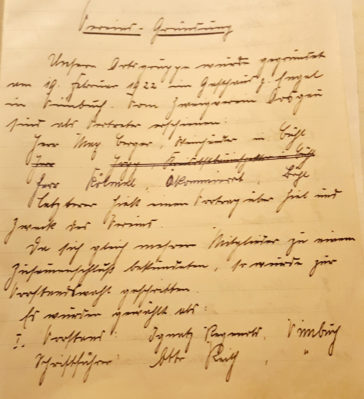 Vereins-Gründung
Unsere Ortsgruppe wurde gegründet
am 19. Februar 1922 im Gasthaus z. Engel
in Simbuch. Vom Zweigverein
sind als Vertreter erschienen:
Herr Max Berger, in Bühl
Herr
Herr Ökonomierat, Bühl
Letzterer hielt einen Vortrag über Ziel und
Zweck des Vereins.
Da sich gleich mehrere Mitglieder zu einem
Zusammenschluß bekundeten, so wurde zur
Vorstandswahl geschritten.
Es wurden gewählt als:
I. Vorstand: Ignatz
Schriftführer: Otto "